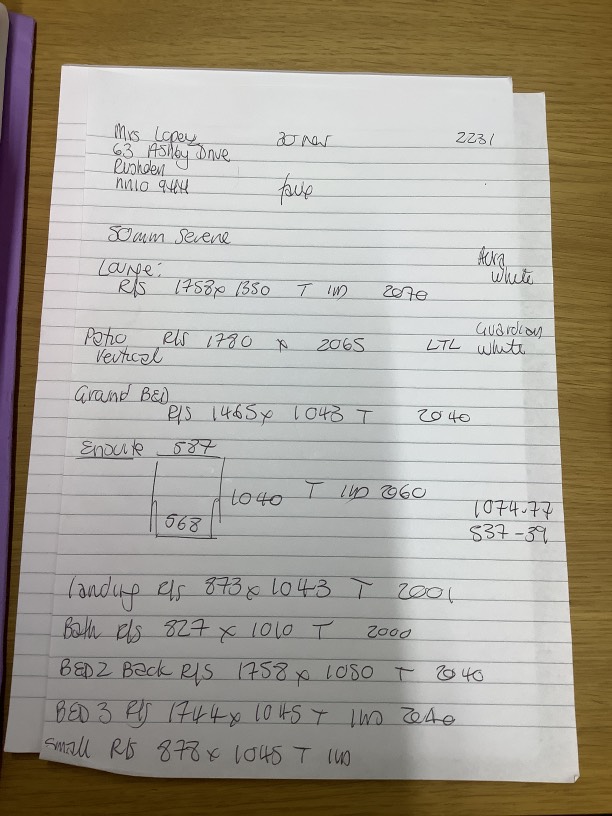 Mrs Lopez 2231
63 Ashby Drive
Rushden
NN10
50mm Serene
Lounge: Acra
R/S 1758 x 1350 T IWD 2070 white
Patio R/S 1780 x 2065 LTL Guardian
Vertical white
Grand BED
R/S 1465 x 1043 T 2040
Ensuite 587
1040 T IWD 2060
568
1074.77
537-39
Landing R/S 873 x 1043 T 2001
Bath R/S 827 x 1010 T 2000
BED 2 Back R/S 1758 x 1050 T 2040
BED 3 R/S 1744 x 1045 T IWD 2040
Small R/S 878 x 1045 T IWD